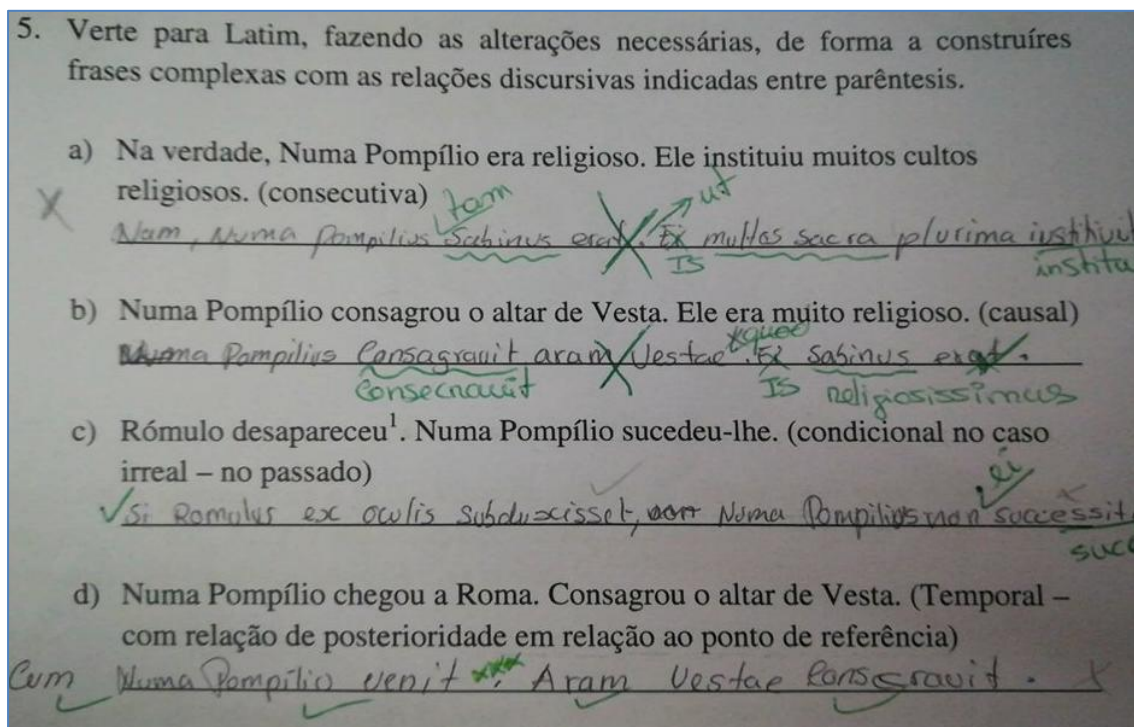 5. Verte para Latim, fazendo as alterações necessárias, de forma a construíres
frases complexas com as relações discursivas indicadas entre parêntesis.
a) Na verdade, Numa Pompílio era religioso. Ele instituiu muitos cultos
religiosos. (consecutiva) tam ut
Nam, Numa Pompilius Sabinus erat. Ex multas sacra plurima
Is institu
b) Numa Pompílio consagrou o altar de Vesta. Ele era muito religioso. (causal)
Numa Pompilius Consagravit aram Vestae. Ex Sabinus erat.
Consecravit Is religiosissimus
c) Rómulo desapareceu¹. Numa Pompílio sucedeu-lhe. (condicional no caso
irreal – no passado) ei
Si Romulus ex oculis subduxisset, Numa Pompilius non successit
succ
d) Numa Pompílio chegou a Roma. Consagrou o altar de Vesta. (Temporal –
com relação de posterioridade em relação ao ponto de referência)
Cum Numa Pompilio venit Aram Vestae